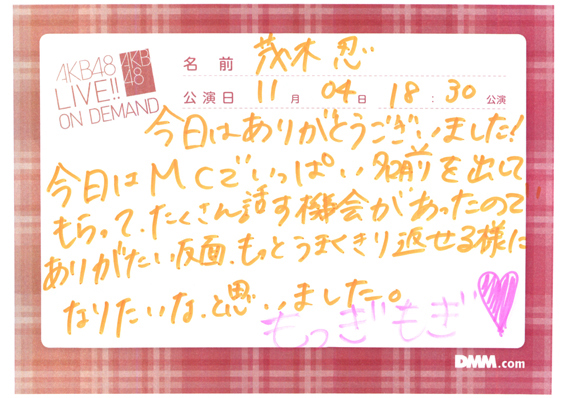 AKB48
LIVE!!
ON DEMAND
AKB
48
名前 茂木忍
公演日 11月 04日 18:30 公演
今日はありがとうございました!
今日はMCでいっぱい名前を出して
もらって、たくさん話す機会があったので
ありがたい反面、もっとうまくきり返せる様に
なりたいな、と思いました。
もっぎもぎ
DMM.com